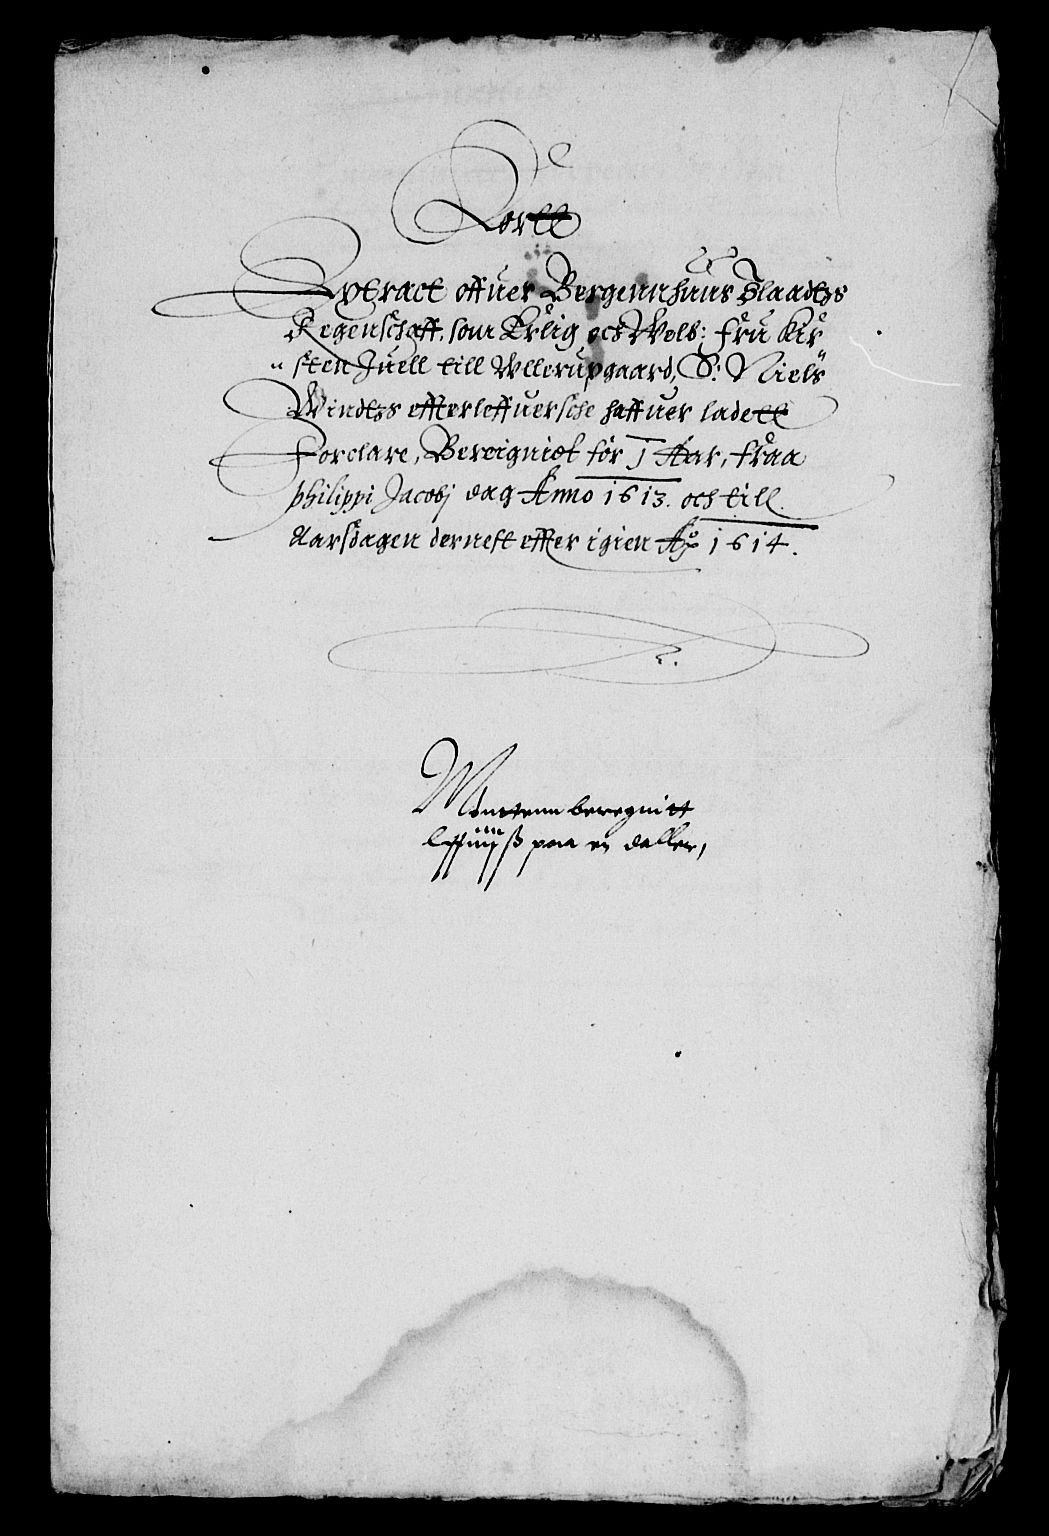 Kortt
Extract offuer Bergennhuus Slaadtzs
Regenschaff, som Erlig och Welb: Fru Kir
"sten Juell till Wllerupgaard, S: Niels
Windtzs effterleffuersche haffuer ladett
Forclare, Bereigniet for 1 Aar, fraa
philippi Jacobj dag Anno 1613. och till
Aarsdagen dernest effter igien Ao 1614.
Mønttenn beregnitt
paa en daller,